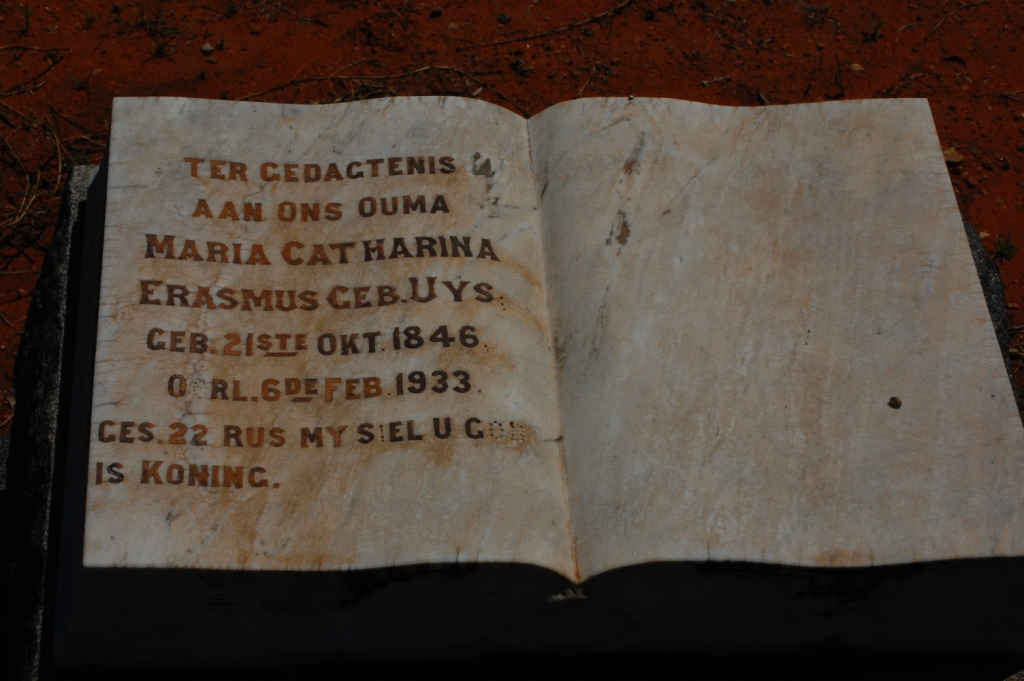 TER GEDAGTENIS
AAN ONS OUMA
MARIA CATHARINA
ERASMUS GEB. UYS.
GEB. 21STE OKT. 1846.
OORL. 6DE FEB. 1933.
GES. 22 RUS MY SIEL U GOD
IS KONING.